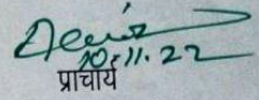 10.11.22
प्राचार्य